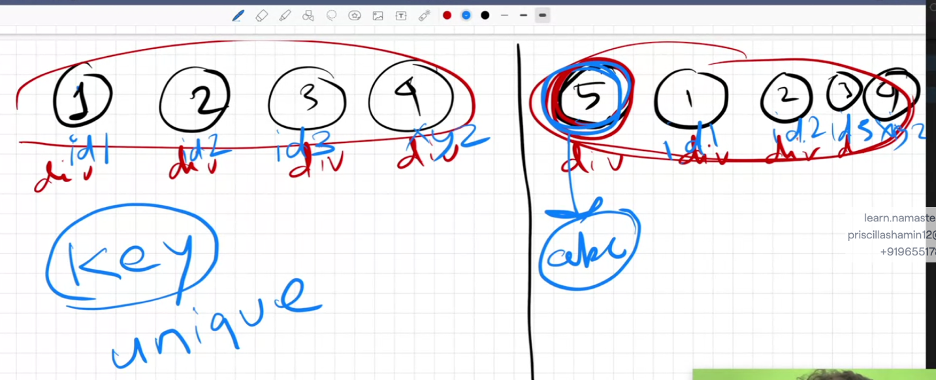 1 2 3 4
id1 id2 id3 xyz
div div div div
key
unique
5 1 2 3 4
id1 id2 id3 xyz
div div div d
abc
learn.namaste
priscillashamin12@
+91965517